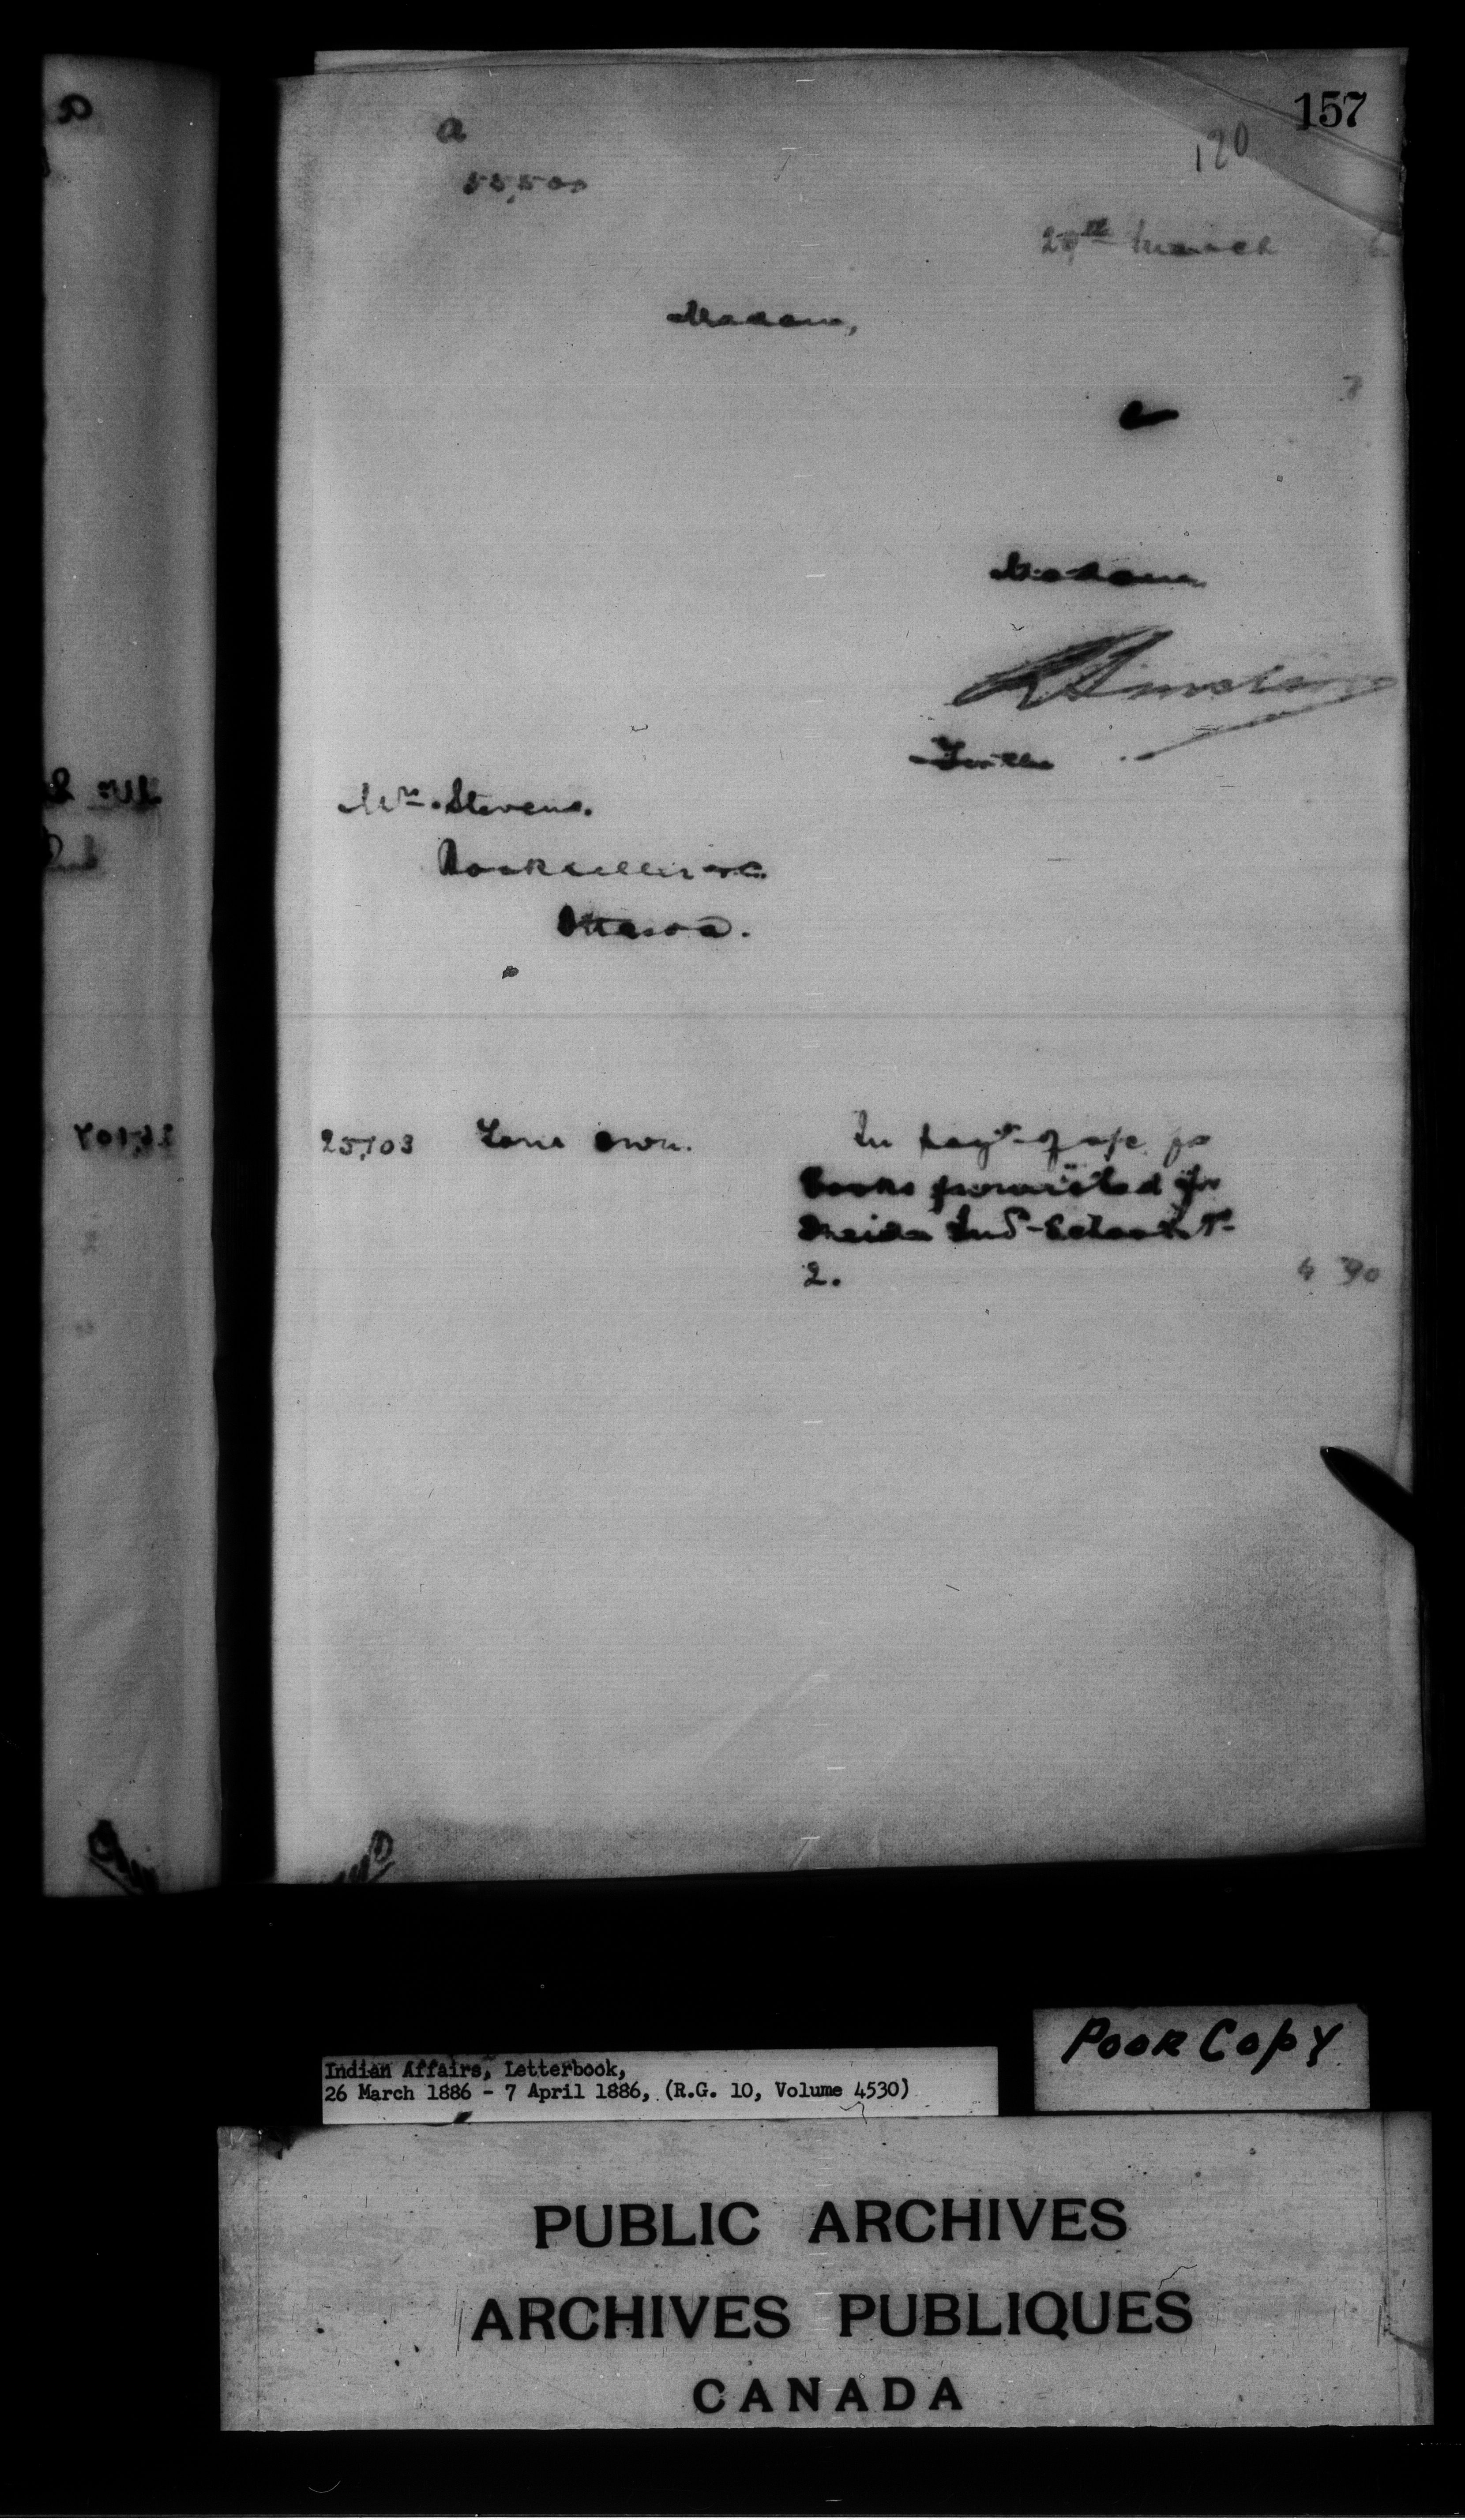 157
a
120
55,500
29th March 6
Madam,
Madam
Mrs. Stevens.
Bookseller &c.
Ottawa.
25,103 Your own. In pay't of a/c for
books furnished for
Oneida Ind. School No
2. 4 90
Indian Affairs, Letterbook,
26 March 1886 - 7 April 1886, (R.G. 10, Volume 4530)
POOR COPY
PUBLIC ARCHIVES
ARCHIVES PUBLIQUES
CANADA